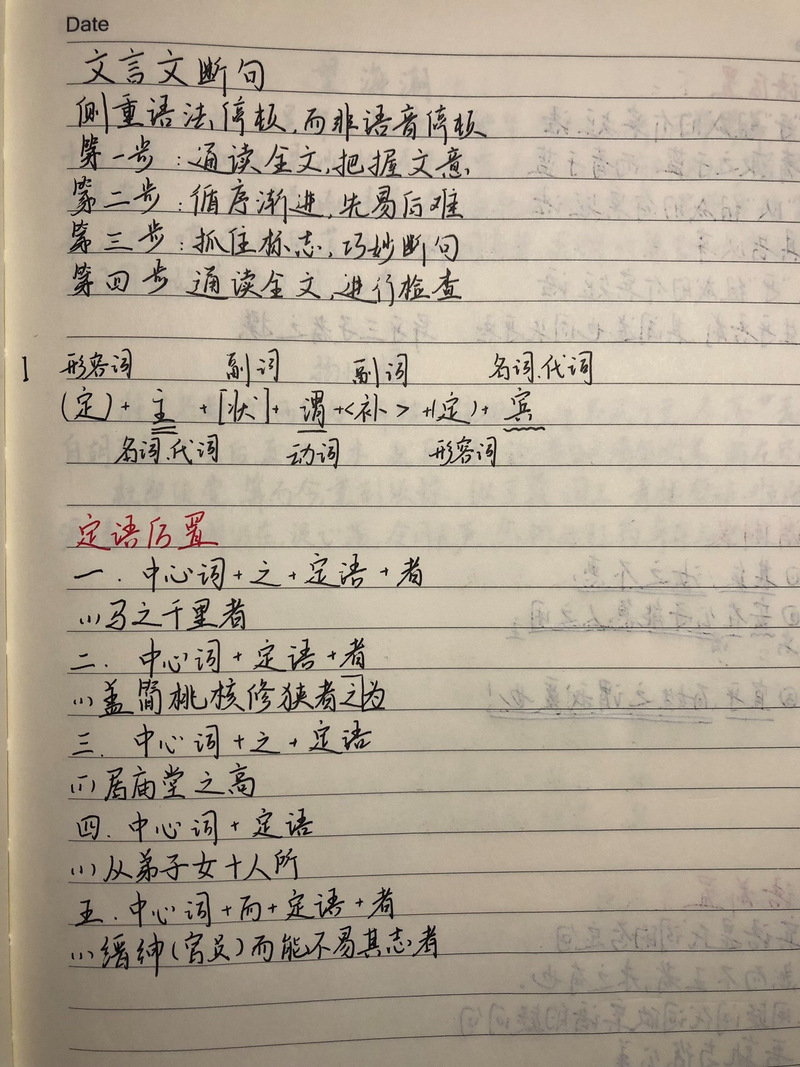 Date
文言文断句
侧重语法停顿,而非语音停顿
第一步:通读全文,把握文意
第二步:循序渐进,先易后难
第三步:抓住标志,巧妙断句
第四步 通读全文,进行检查
1 形容词 副词 副词 名词.代词
(定)+主+[状]+谓+<补>+(定)+宾
名词.代词 动词 形容词
定语后置
一.中心词+之+定语+者
(1)马之千里者
二.中心词+定语+者
(1)盖简桃核修狭者为之
三.中心词+之+定语
(1)居庙堂之高
四.中心词+定语
(1)从弟子女十人所
五.中心词+而+定语+者
(1)缙绅(官员)而能不易其志者